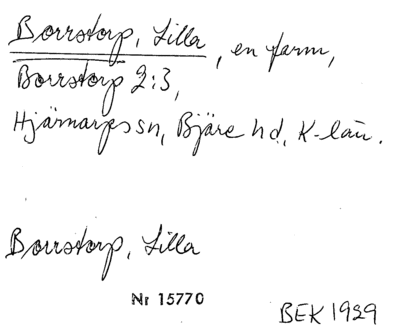 Borrstorp, Lilla, en farm,
Borrstorp 2:3,
Hjärnarps sn, Bjäre hd, K-län.
Borrstorp, Lilla
Nr 15770
BEK 1929